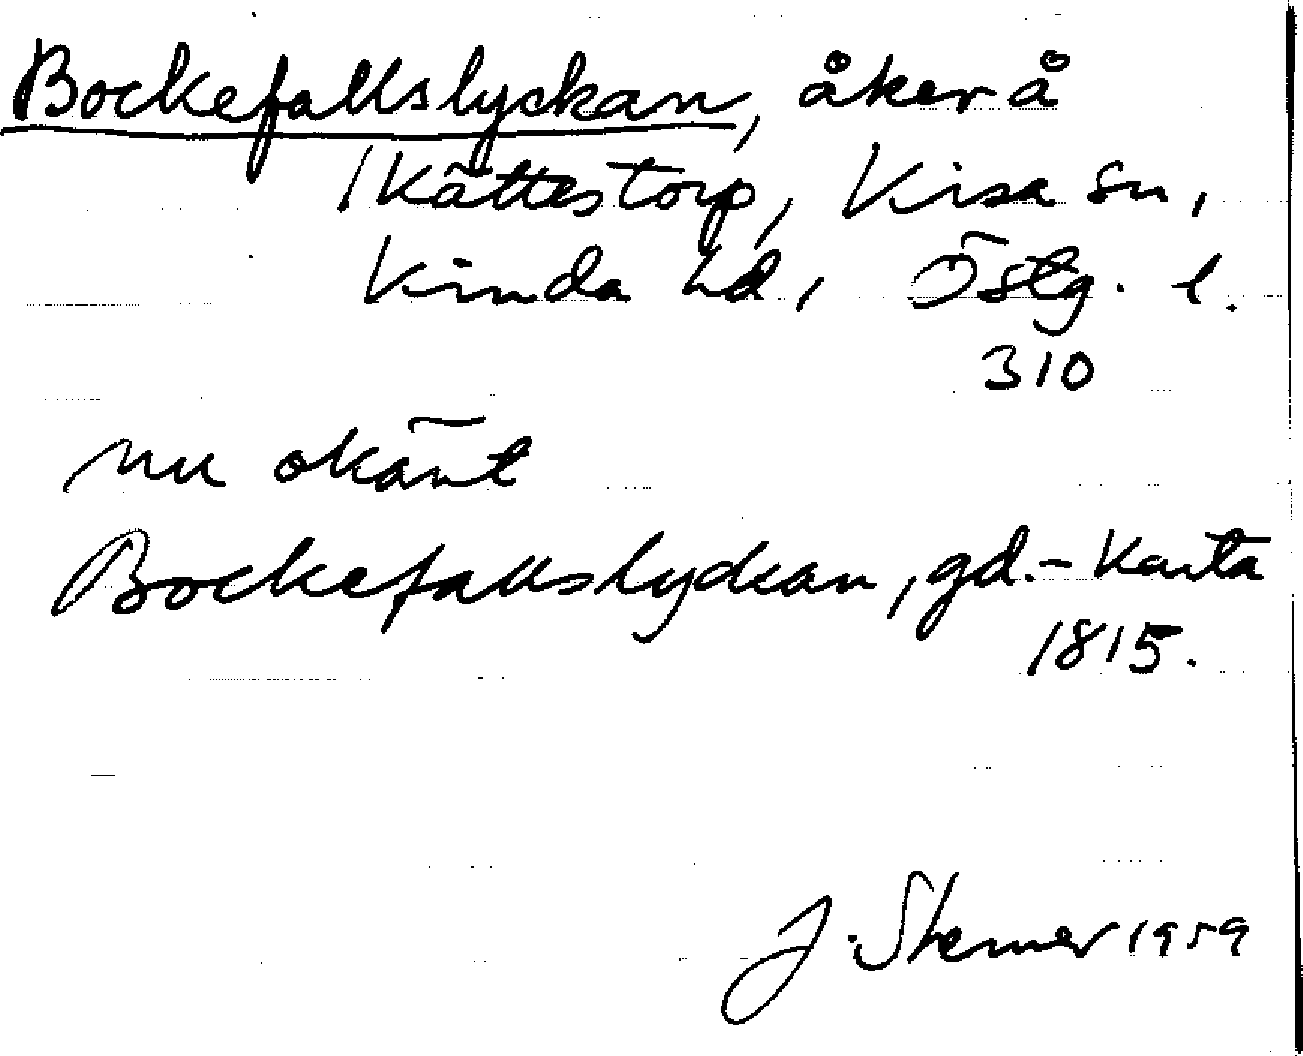 Bockefallslyckan, åker å
Kättestorp, Kisa sn,
Kinda hd, Östg. l.
310
nu okänt
Bockefallslyckan, gd. - Karta
1815.
J. 1959